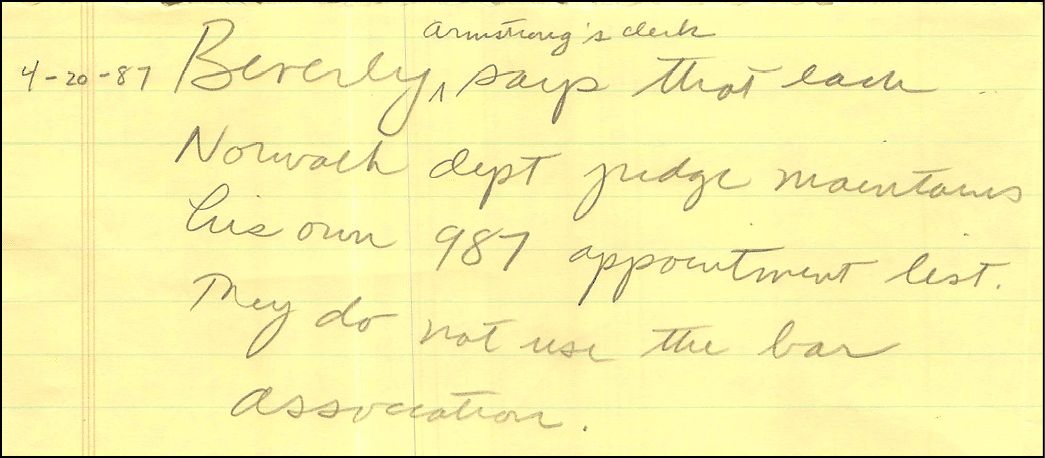 Armstrong's clerk
4-20-87 Beverly, ^ says that each
Norwalk dept judge maintains
his own 987 appointment list.
They do not use the bar
association.